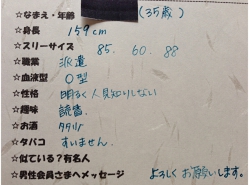 ☆なまえ・年齢 (35歳)
☆身長 159cm
☆スリーサイズ 85. 60. 88
☆職業 派遣
☆血液型 O型
☆性格 明るく人見知りしない
☆趣味 読書
☆お酒
☆タバコ すいません。
☆似ている?有名人
☆男性会員さまへメッセージ
よろしくお願いします。